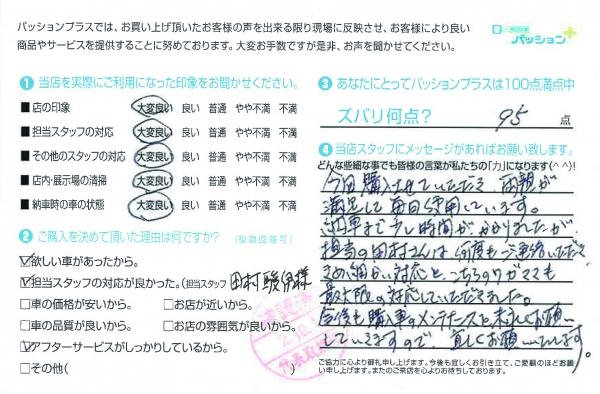 パッションプラスでは、お買い上げ頂いたお客様の声を出来る限り現場に反映させ、お客様により良い
商品やサービスを提供することに努めております。大変お手数ですが是非、お声を聞かせてください。
パッション+
① 当店を実際にご利用になった印象をお聞かせください。
■ 店の印象 大変良い 良い 普通 やや不満 不満
■ 担当スタッフの対応 大変良い 良い 普通 やや不満 不満
■ その他のスタッフの対応 大変良い 良い 普通 やや不満 不満
■ 店内・展示場の清掃 大変良い 良い 普通 やや不満 不満
■ 納車時の車の状態 大変良い 良い 普通 やや不満 不満
② ご購入を決めて頂いた理由は何ですか? (複数回答可)
☑欲しい車があったから。
☑担当スタッフの対応が良かった。(担当スタッフ 田村駿伊様
□車の価格が安いから。 □お店が近いから。
□車の品質が良いから。 □お店の雰囲気が良いから。
☑アフターサービスがしっかりしているから。
□その他( )
③ あなたにとってパッションプラスは100点満点中
ズバリ何点? 95 点
④ 当店スタッフにメッセージがあればお願い致します。
どんな些細な事でも皆様の言葉が私たちの「力」になります(^^)!
今回購入させていただき 両親が
満足して毎日使用しています。
納車まで少し時間がかかりましたが
担当の田村さんは何度もご連絡いただき
きめ細かい対応とこちらのワガママも
最大限の対応していただきました。
今後も購入車のメンテナンスと末永くお願い
していきますので 宜しくお願いいたします。
ご協力に心より御礼申し上げます。今後も宜しくお引き立て、ご愛顧のほどお願
い申し上げます。またのご来店を心よりお待ちしております。